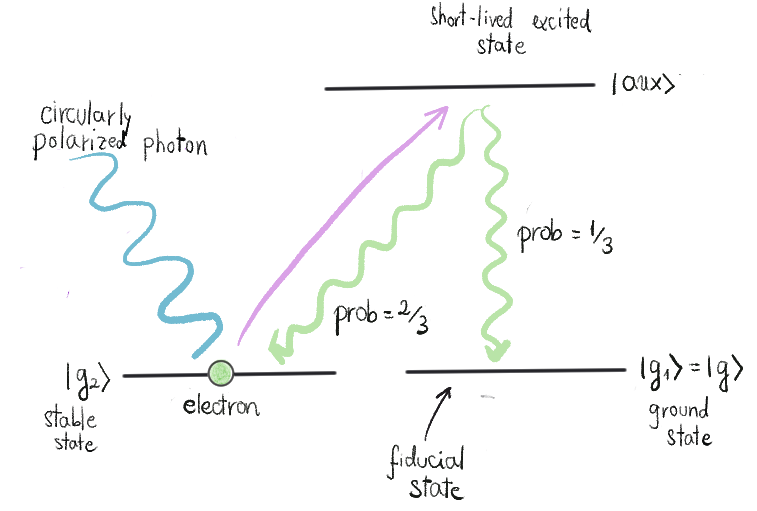 short-lived excited
state
|aux>
circularly
polarized photon
prob = 1/3
prob = 2/3
|g₂>
stable
state
electron
|g₁> = |g>
ground
state
fiducial
state